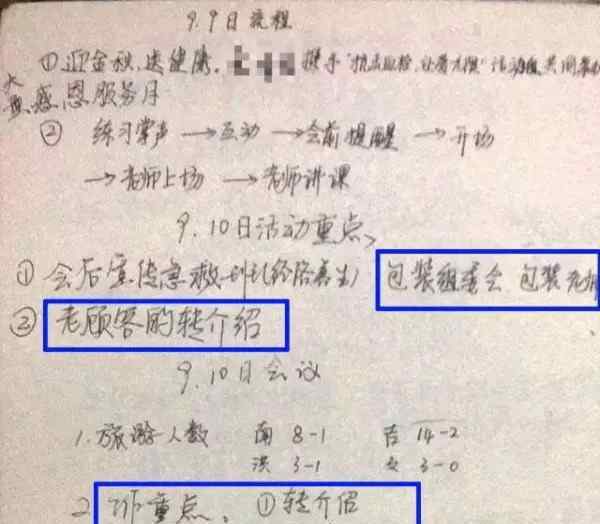 9.9日流程
①迎金秋、送健康。 携手 活动组共同
大型感恩服务月
② 练习掌声 → 互动 → 会前提醒 → 开场
→ 老师上场 → 老师讲课
9.10日活动重点、
① 会后宣传急救 包装组委会 包装老师
② 老顾客的转介绍
9.10日会议
1. 旅游人数 南 8-1 吉 14-2
洪 3-1 3-0
2 工作重点、 ①转介绍